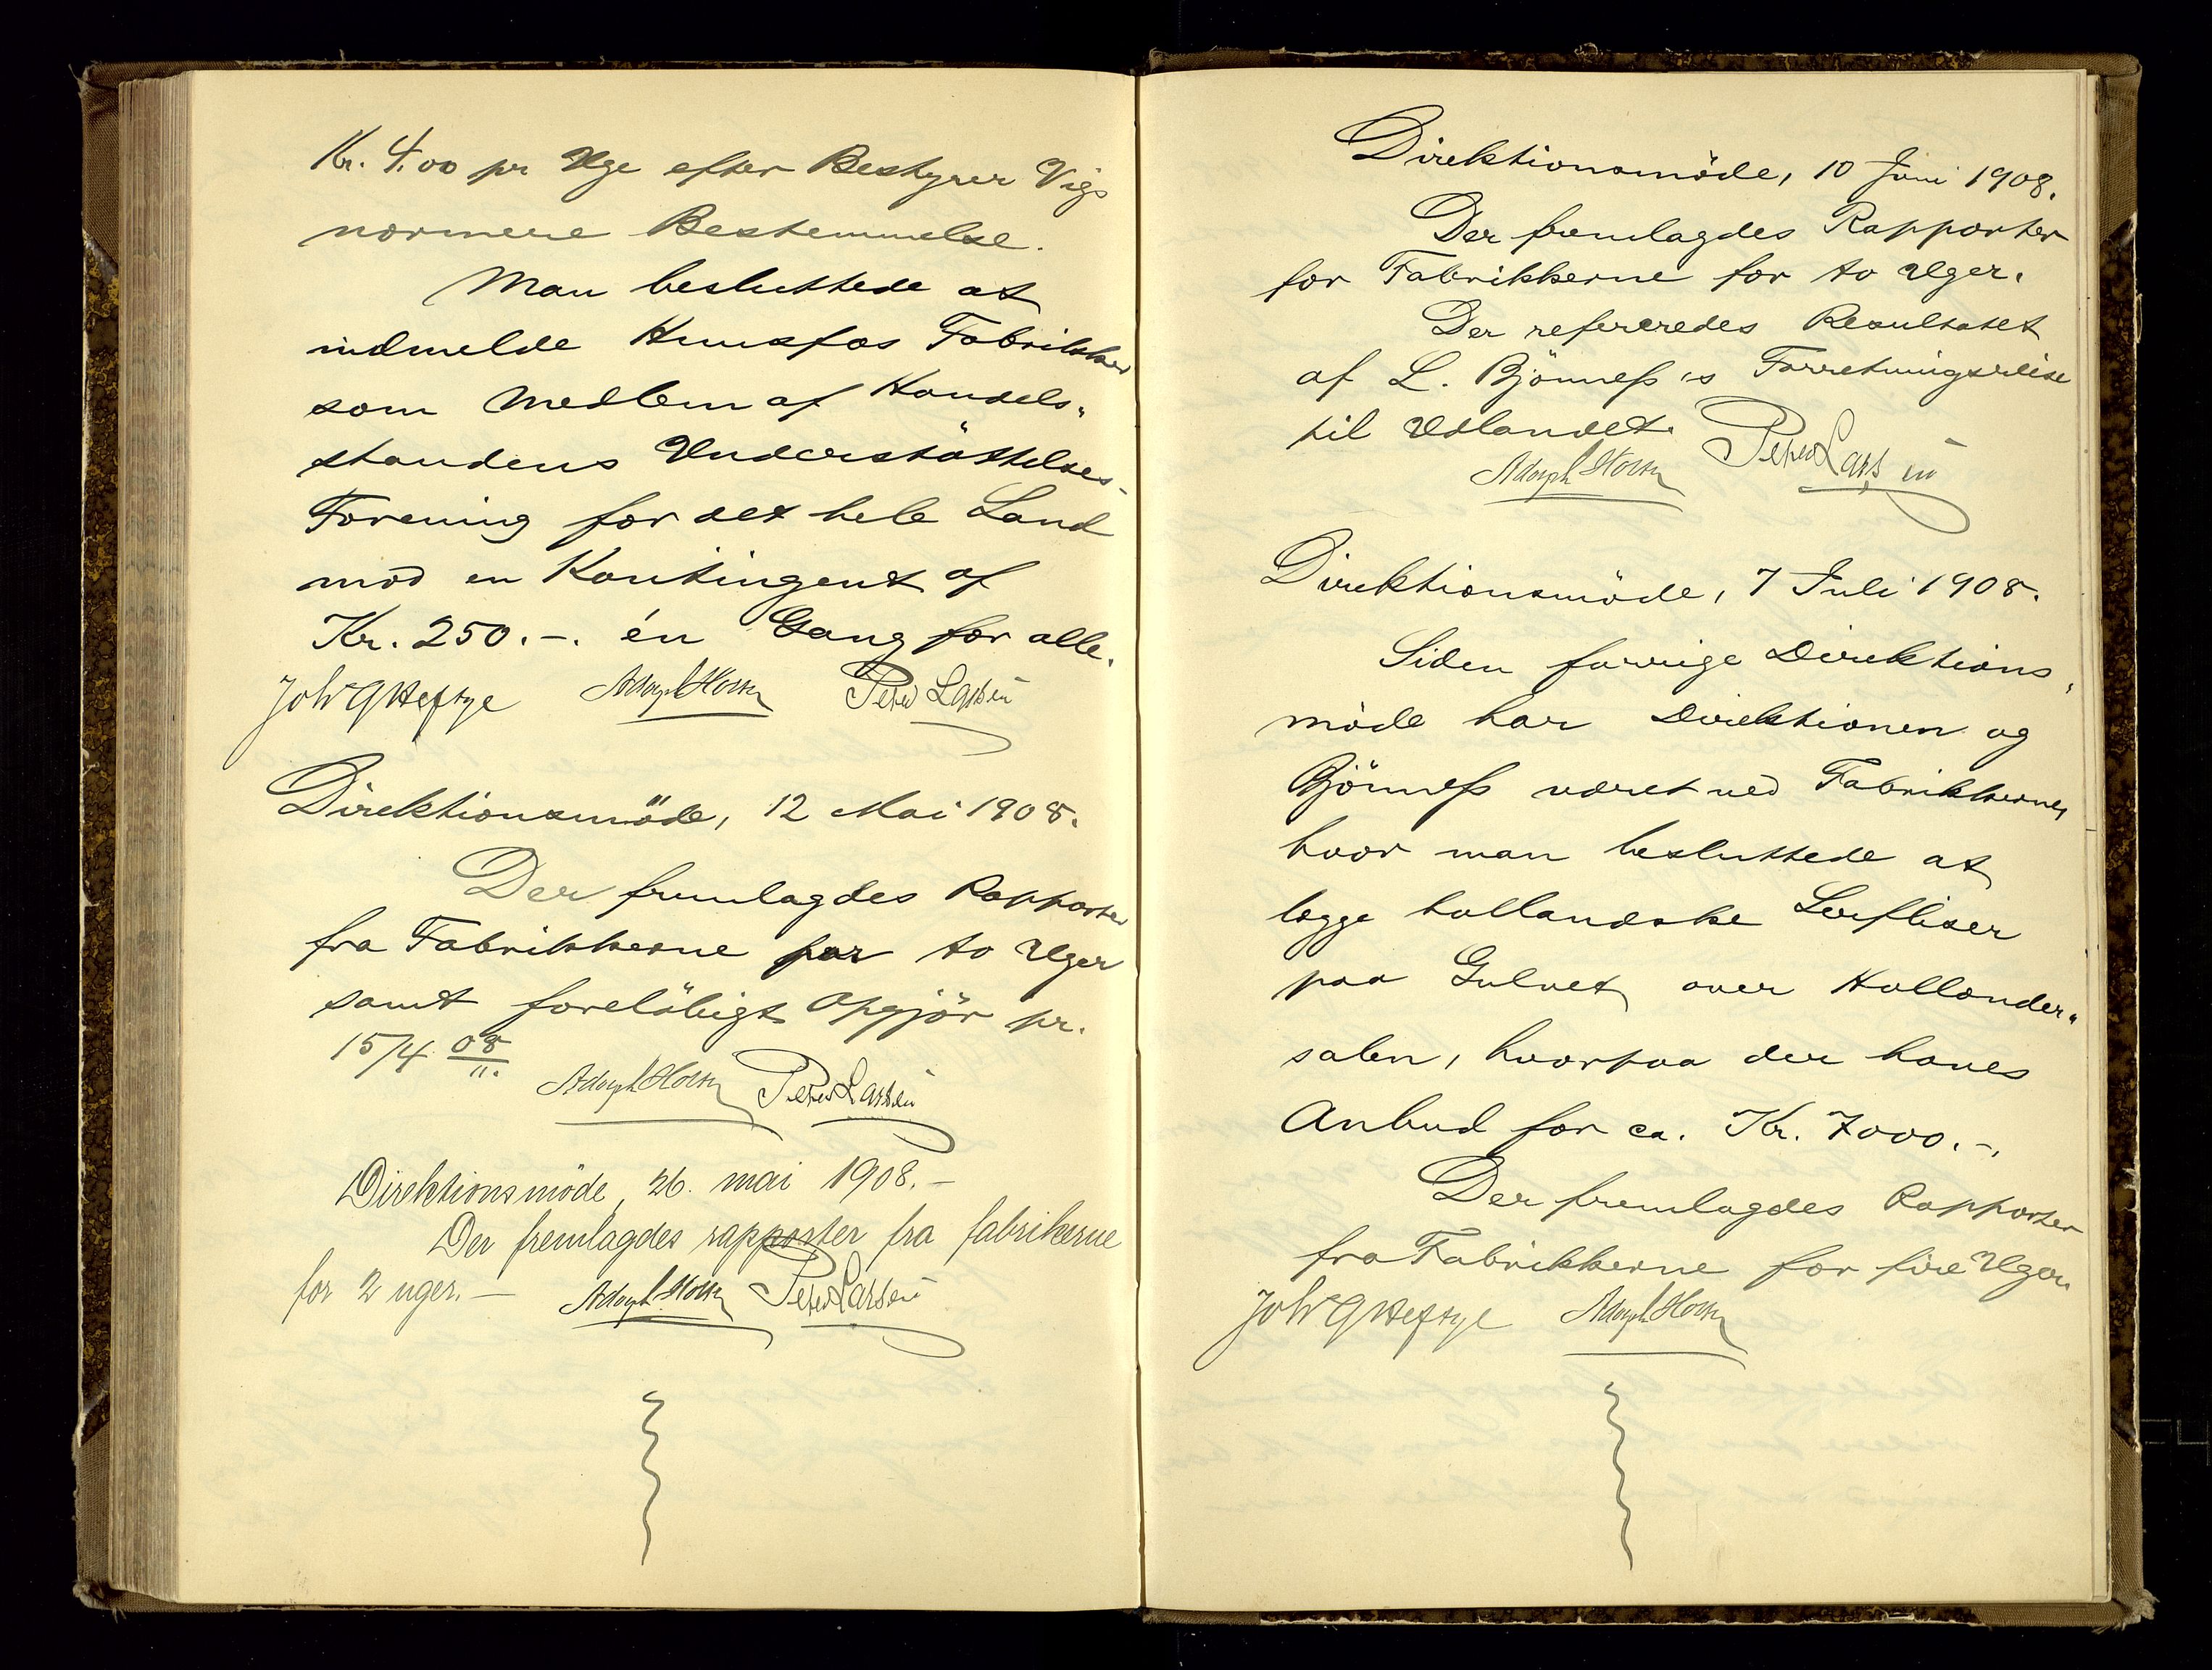 Kr. 4.00 pr Uge efter Bestyrer Vigs
nærmere Bestemmelse.
Man besluttede at
indmelde Hunsfos Fabrikker
som Medlem af Handels„
standens Understøttelses-
Forening for det hele Land
mod en Kontingent af
Kr. 250.-. én Gang for alle.
Joh. G Heftye Adolph Holth Peter Larsen
Direktionsmöde, 12 Mai 1908.
Der fremlagdes Rapporter
fra Fabrikkerne for to Uger
samt forelöbigt Opgjör pr.
15/4 08
Adolph Holth Peter Larsen
Direktionsmöde, 26. mai 1908.-
Der fremlagdes rapporter fra fabrikerne
for 2 uger.- Adolph Holth Peter Larsen
Direktionsmöde, 10 Juni 1908.
Der fremlagdes Rapporter
for Fabrikkerne for to Uger.
Der refereredes Resultatet
af L. Bjönness's Forretningsreise
til Udlandet. Peter Larsen
Adolph Holth
Direktionsmöde, 7 Juli 1908.
Siden forrige Direktions„
möde har Direktionen og
Bjönness været ved Fabrikkerne,
hvor man besluttede at
lægge hollandske Lerfliser
paa Gulvet over Hollænder„
salen, hvorpaa der haves
Anbud for ca. Kr. 7000.-.
Der fremlagdes Rapporter
fra Fabrikkerne for fire Uger.
Joh. G Heftye Adolph Holth